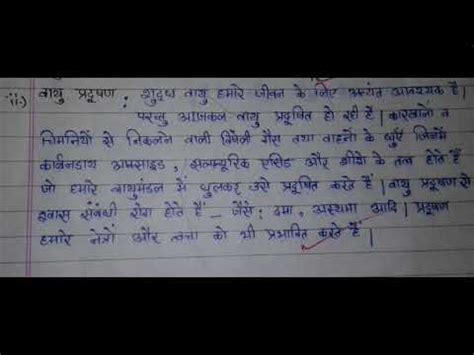 ii.) वायु प्रदूषण : शुद्ध वायु हमारे जीवन के लिए अत्यंत आवश्यक है।
परन्तु आजकल वायु प्रदूषित हो रही है। कारखानों व
चिमनियों से निकलने वाली विषैली गैस तथा वाहनों के धुएँ जिनमें
कार्बनडाय आक्साइड, सल्फ्यूरिक एसिड और शीशे के तत्व होते हैं
जो हमारे वायुमंडल में घुलकर उसे प्रदूषित करते हैं। वायु प्रदूषण से
श्वास संबंधी रोग होते हैं – जैसे : दमा, अस्थमा आदि। प्रदूषण
हमारे नेत्रों और त्वचा को भी प्रभावित करते हैं।